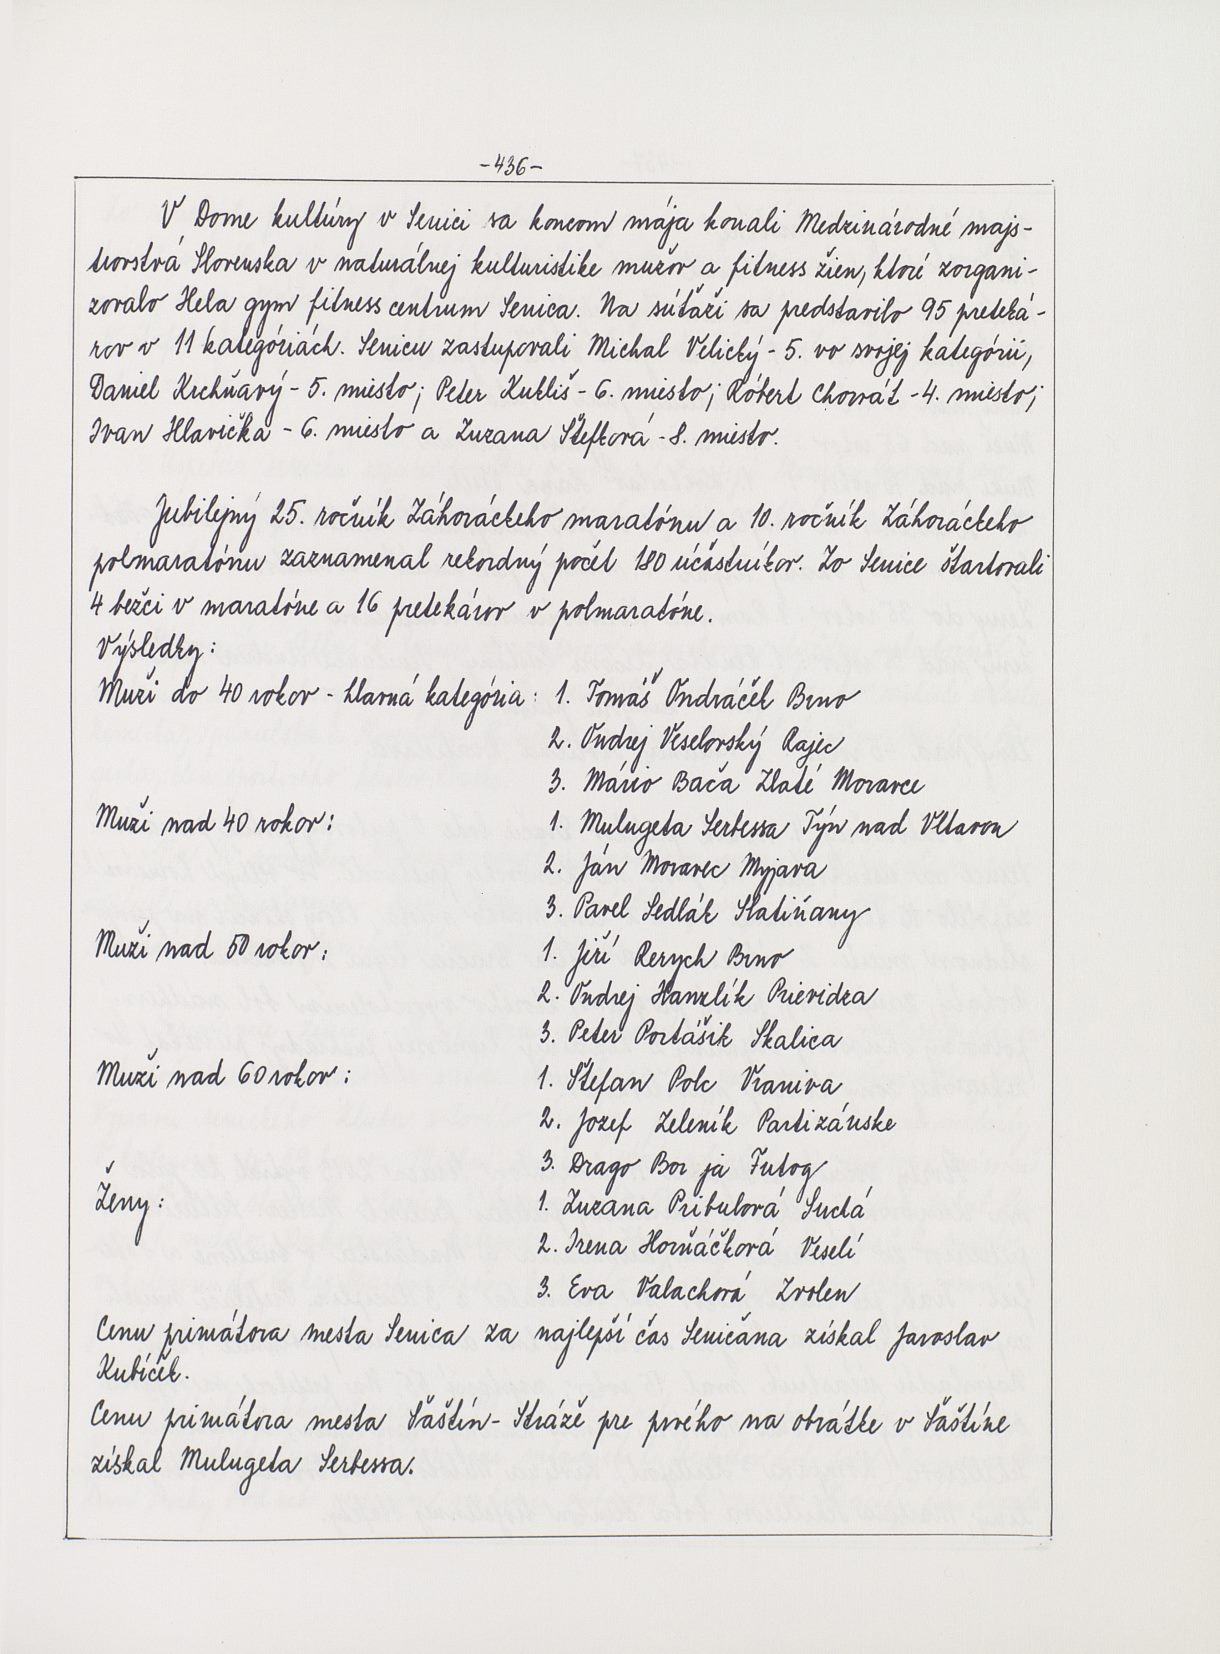 -436-
V Dome kultúry v Senici sa koncom mája konali Medzinárodné majs-
trovstvá Slovenska v naturálnej kulturistike mužov a fitness žien, ktoré zorgani-
zovalo Hela gym fitness centrum Senica. Na súťaži sa predstavilo 95 preteká-
rov v 11 kategóriách. Senicu zastupovali Michal Velický - 5. vo svojej kategórii,
Daniel Krchňavý - 5. miesto; Peter Kubliš - 6. miesto; Róbert Chovát - 4. miesto;
Ivan Hlavička - 6. miesto a Zuzana Štefková - 8. miesto.
Jubilejný 25. ročník Záhoráckeho maratónu a 10. ročník Záhoráckeho
polmaratónu zaznamenal rekordný počet 180 účastníkov. Zo Senice štartovali
4 bežci v maratóne a 16 pretekárov v polmaratóne.
Výsledky:
Muži do 40 rokov - hlavná kategória: 1. Tomáš Ondráček Brno
2. Ondrej Veselovský Rajec
3. Mário Bača Zlaté Moravce
Muži nad 40 rokov: 1. Mulugeta Serbessa Týn nad Vltavou
2. Ján Moravec Myjava
3. Pavel Sedlák Slatiňany
Muži nad 50 rokov: 1. Jiří Rerych Brno
2. Ondrej Hanzlík Prievidza
3. Peter Portášik Skalica
Muži nad 60 rokov: 1. Štefan Polc Vraniva
2. Jozef Zeleník Partizánske
3. Drago Bor ja Futog
Ženy: 1. Zuzana Pribulová Suchá
2. Irena Horňáčková Veselí
3. Eva Valachová Zvolen
Cenu primátora mesta Senica za najlepší čas Seničana získal Jaroslav
Kubíček.
Cenu primátora mesta Šaštín-Stráže pre prvého na obrátke v Šaštíne
získal Mulugeta Serbessa.